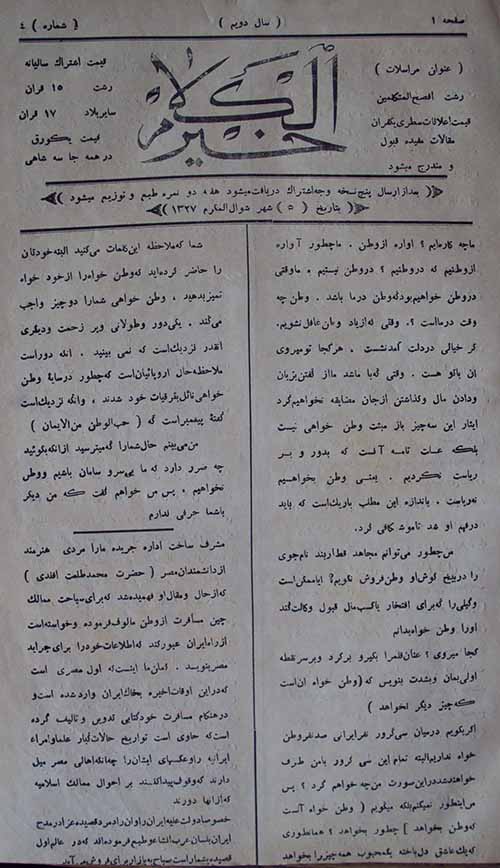 صفحه ۱
( سال دویم )
( شماره ) ۴
( عنوان مراسلات )
رشت افصح المتکلمین
قیمت اعلانات سطری یکقران
مقالات مفیده قبول
و مندرج میشود
خیر الکلام
قیمت اشتراك سالیانه
رشت ۱۵ قران
سایر بلاد ۱۷ قران
قیمت یکورق
در همه جا سه شاهی
بعد از ارسال پنج نسخه وجه اشتراك دریافت میشود هفته دو نمره طبع و توزیع میشود
بتاریخ ( ۵ ) شهر شوال المکرم ۱۳۲۷
ماچه کاره‌ایم ؟ آواره از وطن . ماچطور آواره
از وطنیم که در وطنیم ؟ در وطن نیستیم . ما وقتی
در وطن خواهیم بود که وطن در ما باشد . وطن چه
وقت در ما است ؟ . وقتی که از یاد وطن غافل نشویم .
گر خیالی در دلت آمد نشست . هر کجا تو میروی
آن باتو هست . وقتی که با ما شد ما از گفتن بزبان
ودادن مال و گذاشتن از جان مضایقه نخواهیم کرد
ایثار این سه چیز باز مثبت وطن خواهی نیست
بلکه علت تامه آنست که بدور و بر
ریاست نگردیم . یعنی وطن بخواهیم
نه ریاست . باندازه این مطلب باریك است که باید
در فهم او شد ناموشکافی کرد .
من چطور می‌توانم مجاهد قطار بند نام جوی
را در پیخ گوش او وطن فروش نگویم ؟ آیا ممکن است
وکیلی را که برای افتخار یا کسب مال قبول وکالت کند
اورا وطن خواه بدانم
کجا میروی ؟ عنان قلمرا بگیر و برگرد و بر سر نقطه
اولی بمان و بشدت بنویس که ( وطن خواه آن است
که چیز دیگر نخواهد )
اگر بگویم در میان سی کرور نفر ایرانی صد نفر وطن
خواه نداریم البته تمام این سی کرور با من طرف
خواهند شد در این صورت من چه خواهم کرد ؟ پس
من اینطور نمیگویم بلکه میگویم ( وطن خواه آنست
که وطن بخواهد ) چطور بخواهد ؟ همانطوری
که یك عاشق دل باخته یك محبوب همه چیز را بخواهد
شما که ملاحظه این نغمات می‌کنید البته خودتان
را حاضر کرده‌اید که وطن خواه را از خود خواه
تمیز بدهید ، وطن خواهی شما را دو چیز واجب
می‌کند . یکی دور و طولانی و پر زحمت و دیگری
آنقدر نزدیك است که نمی بینید . آنکه دور است
ملاحظه حال اروپائیان است که چطور در سایه وطن
خواهی نائل بترقیات خود شدند ، وآنکه نزدیك است
گفته پیغمبر است که ( حب الوطن من الایمان )
من می‌بینم حال شما را که میترسید از آنکه بگوئید
چه ضرر دارد که ما بی‌سر و سامان باشیم و وطن
نخواهیم . پس من خواهم گفت که من دیگر
باشما حرفی ندارم
مشرف ساخت اداره جریده ما را مردی هنرمند
از دانشمندان مصر ( حضرت محمد طلعت افندی )
که از حال و مقال او فهمیده شد که برای سیاحت ممالك
چین مسافرت از وطن مألوف فرموده و خواسته است
از راه ایران عبور کند که اطلاعات خود را برای جراید
مصر بنویسد . گمان ما اینست که اول مصری است
که در این اوقات اخیره بخاك ایران وارد شده است و
در هنگام مسافرت خود کتابی تدوین و تالیف کرده
است که حاوی است تواریخ حالات کبار علما و امراء
ایرانیه را و عکسهای ایشان را چه آنکه اهالی مصر میل
دارند که وقوف پیدا کنند بر احوال ممالك اسلامیه
که از آنها دورند